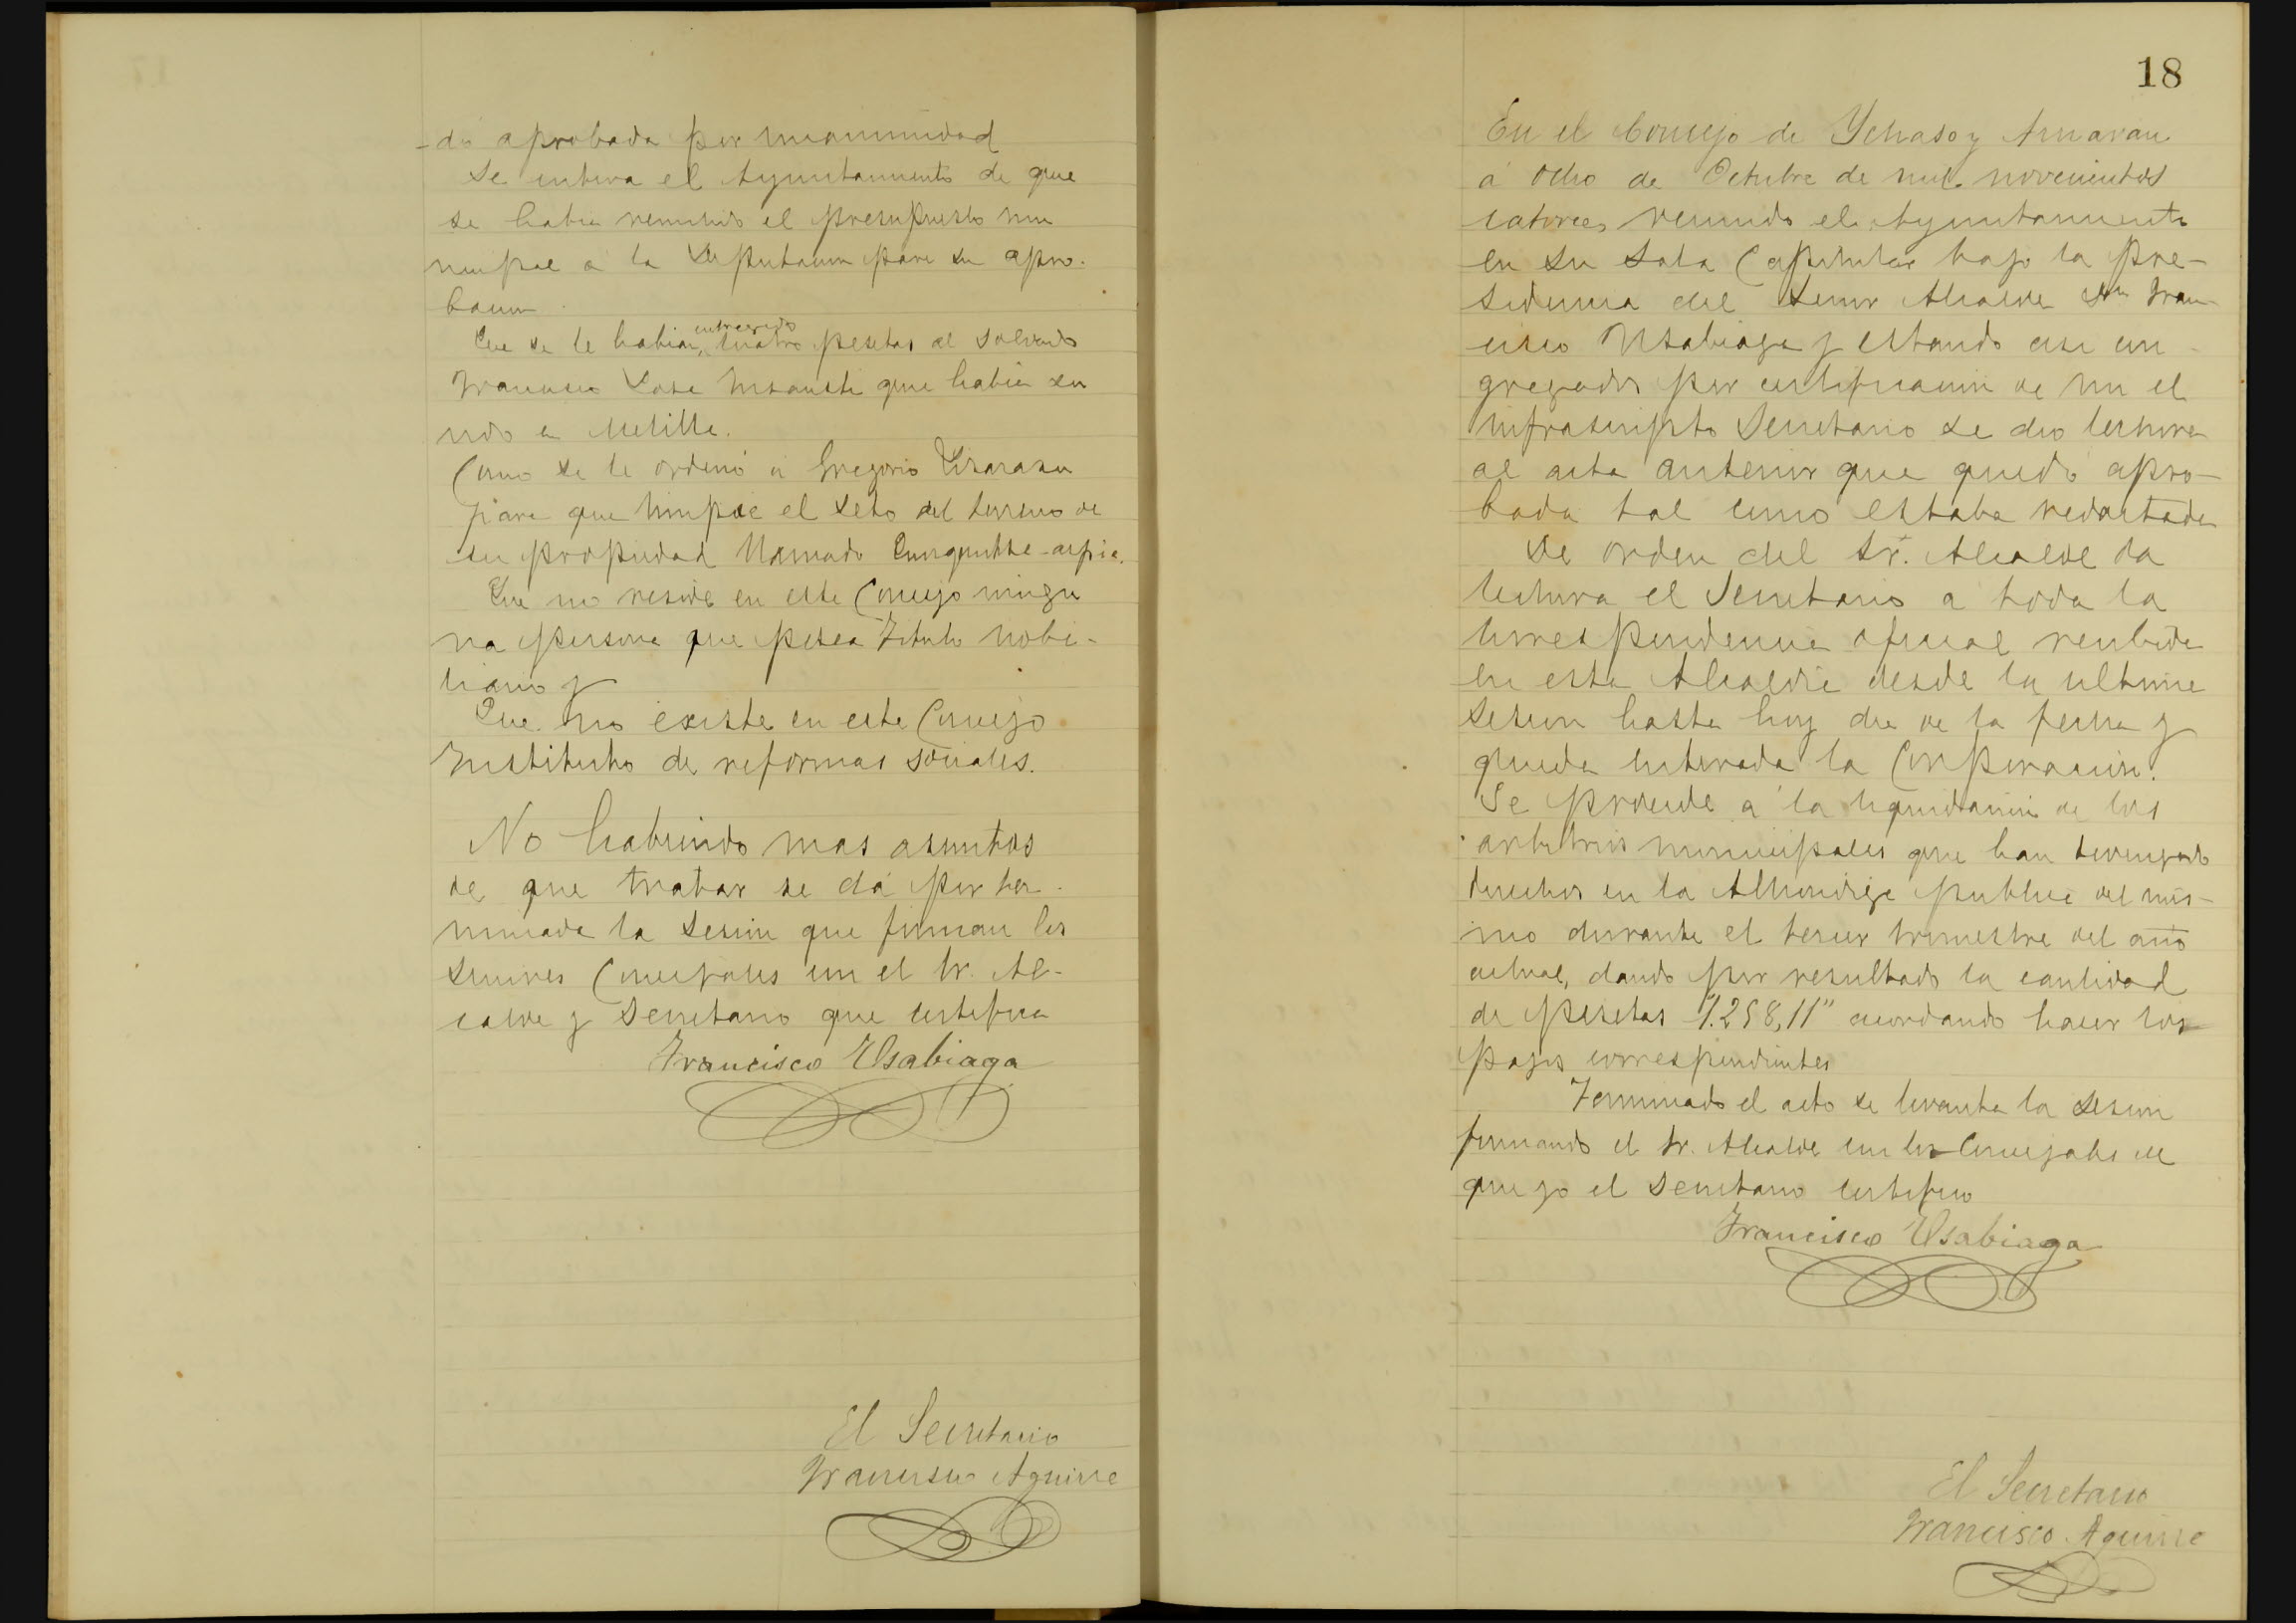 -dó aprobada por unanimidad
Se entera el Ayuntamiento de que
se había remitido el presupuesto mu
nicipal a la Diputacion para su apro-
bacion
Que se le habian entregado cuatro pesetas al soldado
Francisco José Insausti que había su
rido en Melilla.
Como se le ordenó a Gregorio Lizarazu
para que limpie el seto del terreno de
su propiedad llamado
Que no reside en este Concejo ningu
na persona que posea Titulo nobi-
liario y
Que no existe en este Concejo
Instituto de reformas sociales.
No habiendo mas asuntos
de que tratar se dá por ter-
minada la sesion que firman los
señores Concejales con el Sr. Al-
calde y Secretario que certifica
Francisco Usabiaga
El Secretario
Francisco Aguirre
18
En el Concejo de Ychaso y Arriaran
á ocho de Octubre de mil novecientos
catorce, reunido el Ayuntamiento
en su Sala Capitular bajo la pre-
sidencia del Señor Alcalde Dn Fran-
cisco Usabiaga y estando asi con-
gregados por certificacion de mi el
infrascripto Secretario se dio lectura
al acta anterior que quedó apro-
bada tal como estaba redactada
De orden del Sr. Alcalde da
lectura el Secretario a toda la
correspondencia oficial recibida
en esta Alcaldia desde la ultima
sesion hasta hoy dia de la fecha y
queda enterada la Corporacion.
Se procede a la liquidacion de los
arbitrios municipales que han devengado
derechos en la Alhondiga publica del mis-
mo durante el tercer trimestre del año
actual, dando por resultado la cantidad
de pesetas 1.258,11" acordando hacer los
pagos correspondientes
Terminado el acto se levanta la sesion
firmando el Sr. Alcalde con los Concejales de
que yo el Secretario certifico
Francisco Usabiaga
El Secretario
Francisco Aguirre